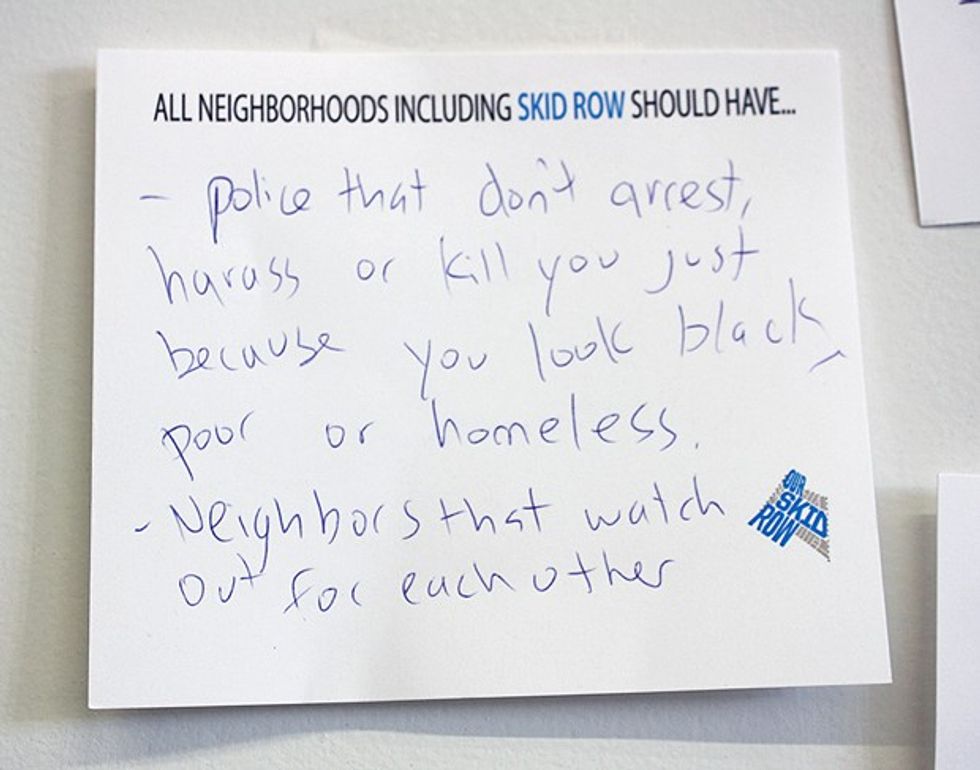 ALL NEIGHBORHOODS INCLUDING SKID ROW SHOULD HAVE...
- police that don't arrest,
harass or kill you just
because you look black,
poor or homeless.
- Neighbors that watch
out for each other
OUR
SKID
ROW